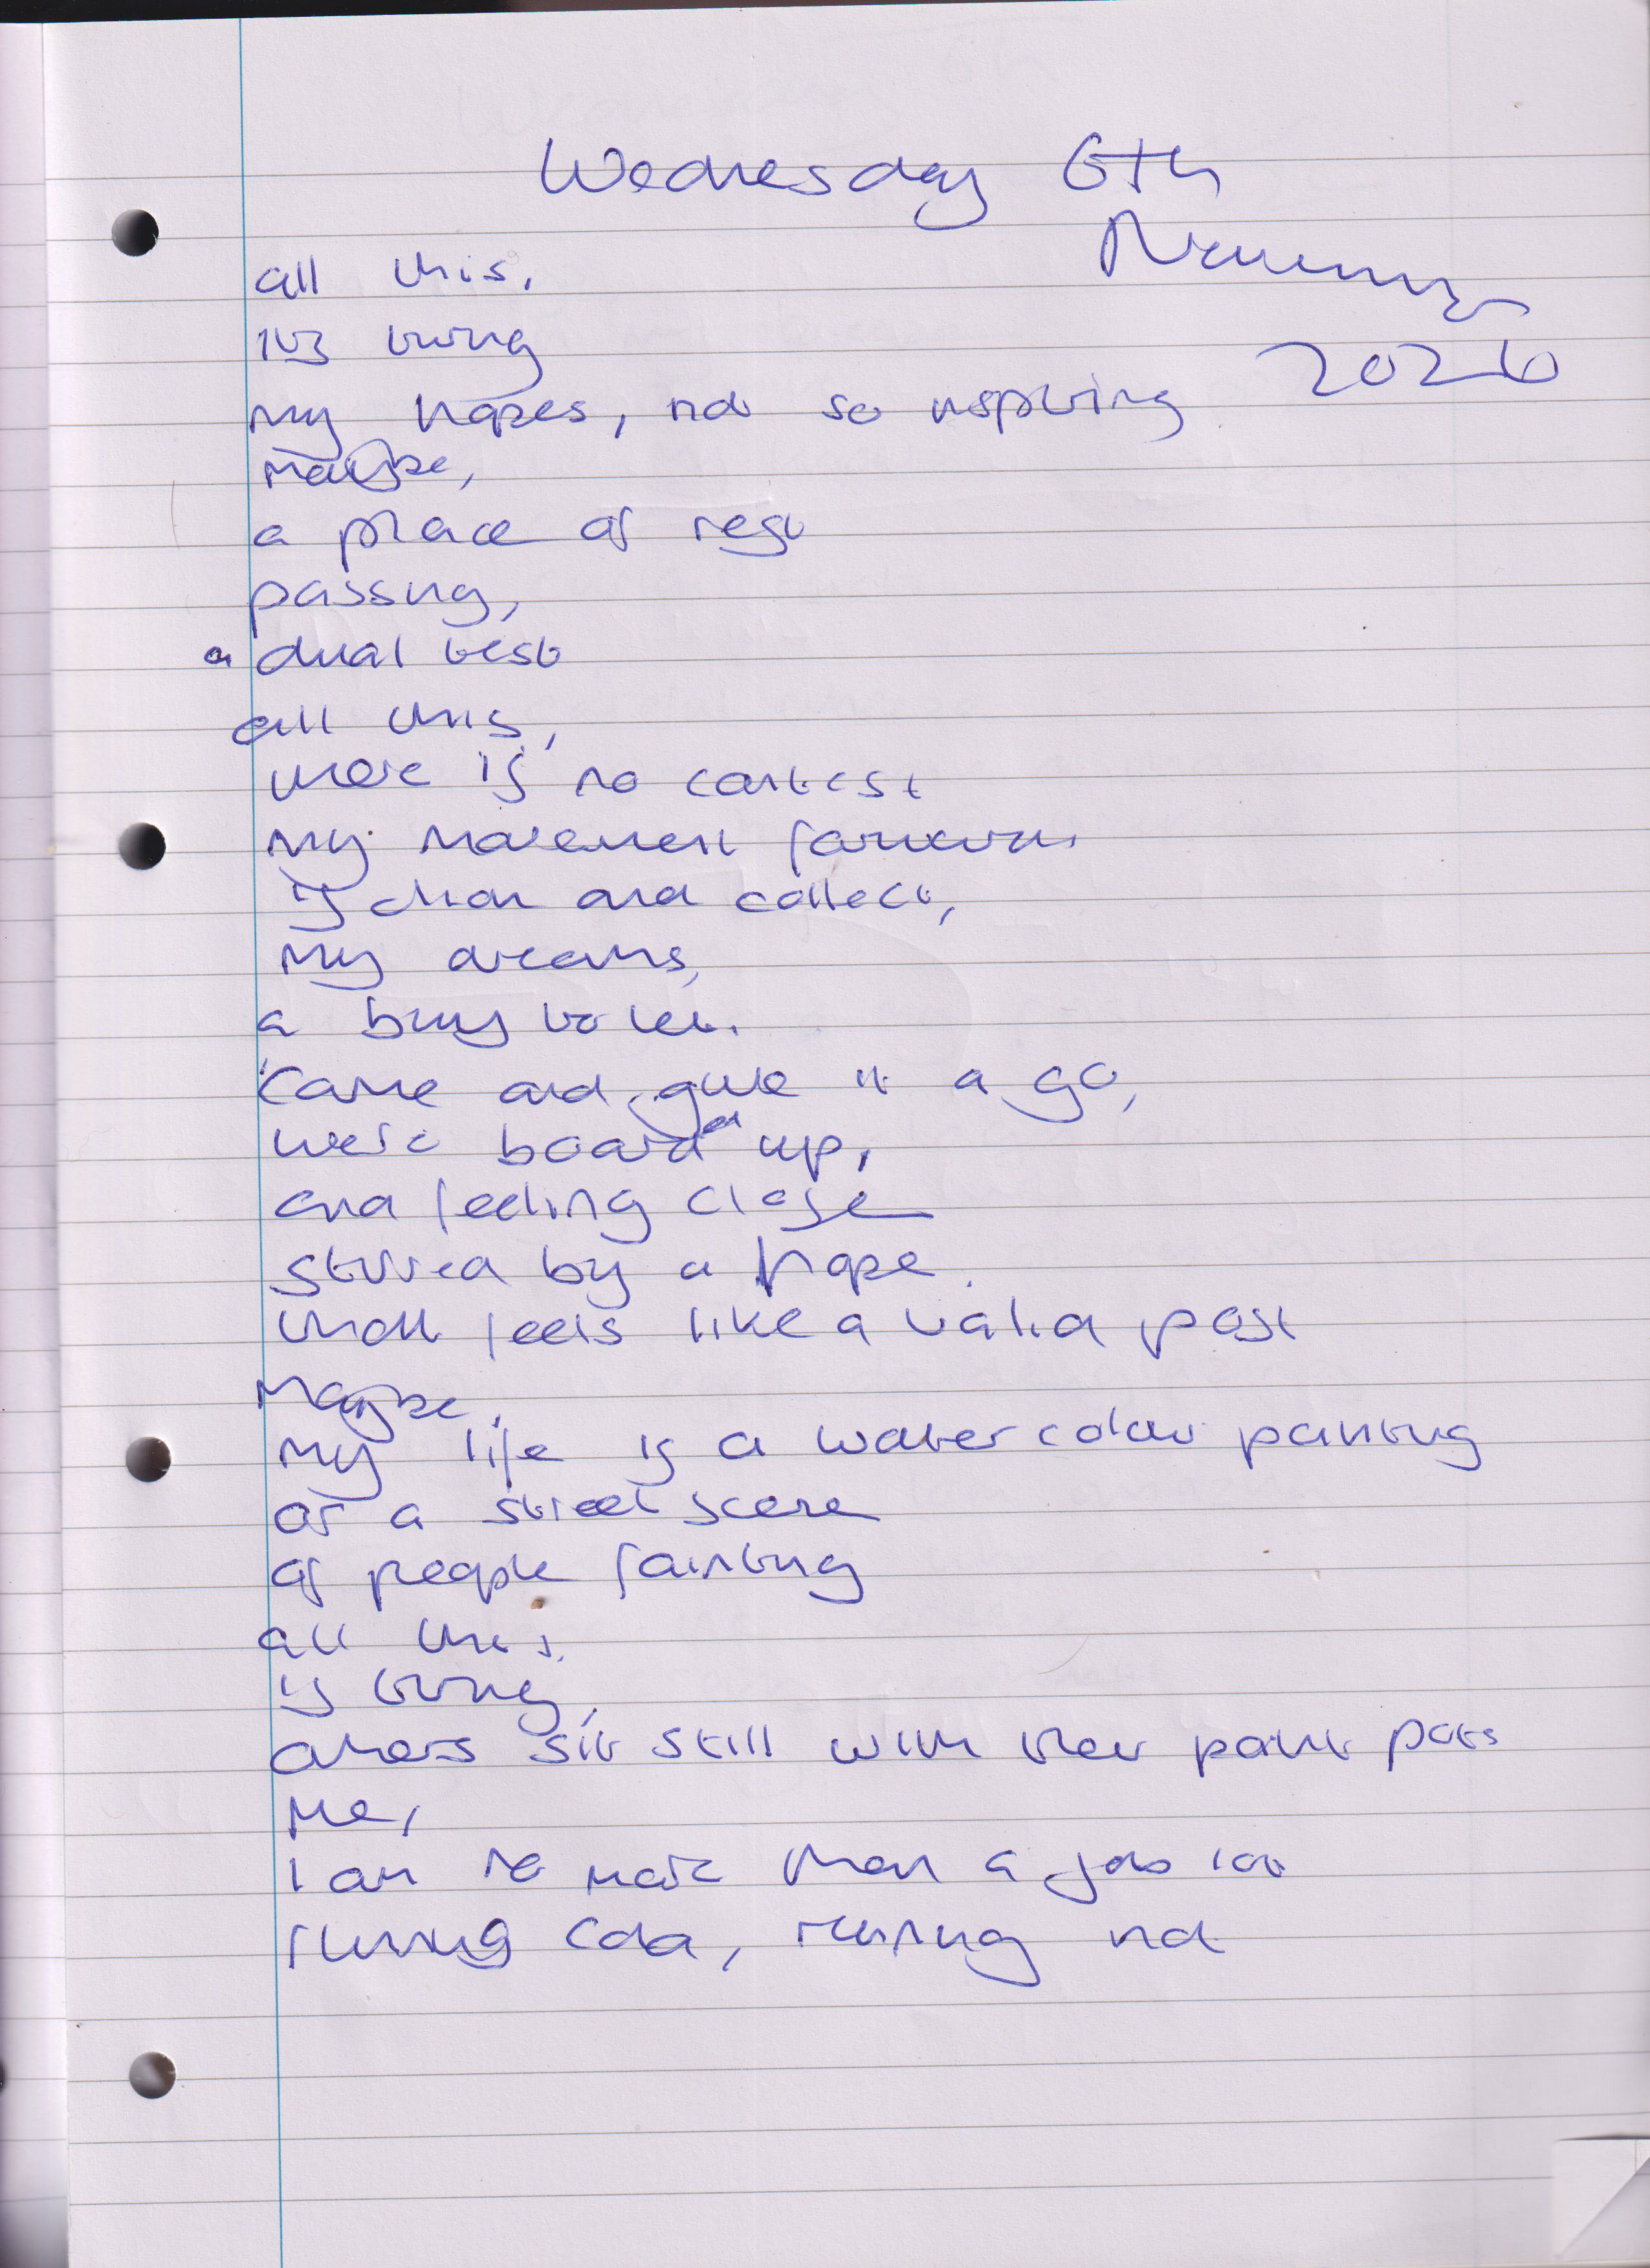 Wednesday 6th
2026
all this,
is tiring
my hopes, not so inspiring
maybe,
a place of rest
passing,
a dual test
all this,
there is no contest
my movement forward
is clear and collect,
my dreams,
a buy to let.
Come and give it a go,
were boarded up,
and feeling close
stirred by a hope.
that feels like a valid post
Maybe,
my life is a watercolour painting
of a street scene
of people fainting
all this,
is tiring,
others sit still with their paint pots
me,
I am no more than a job lot
running cold, running hot